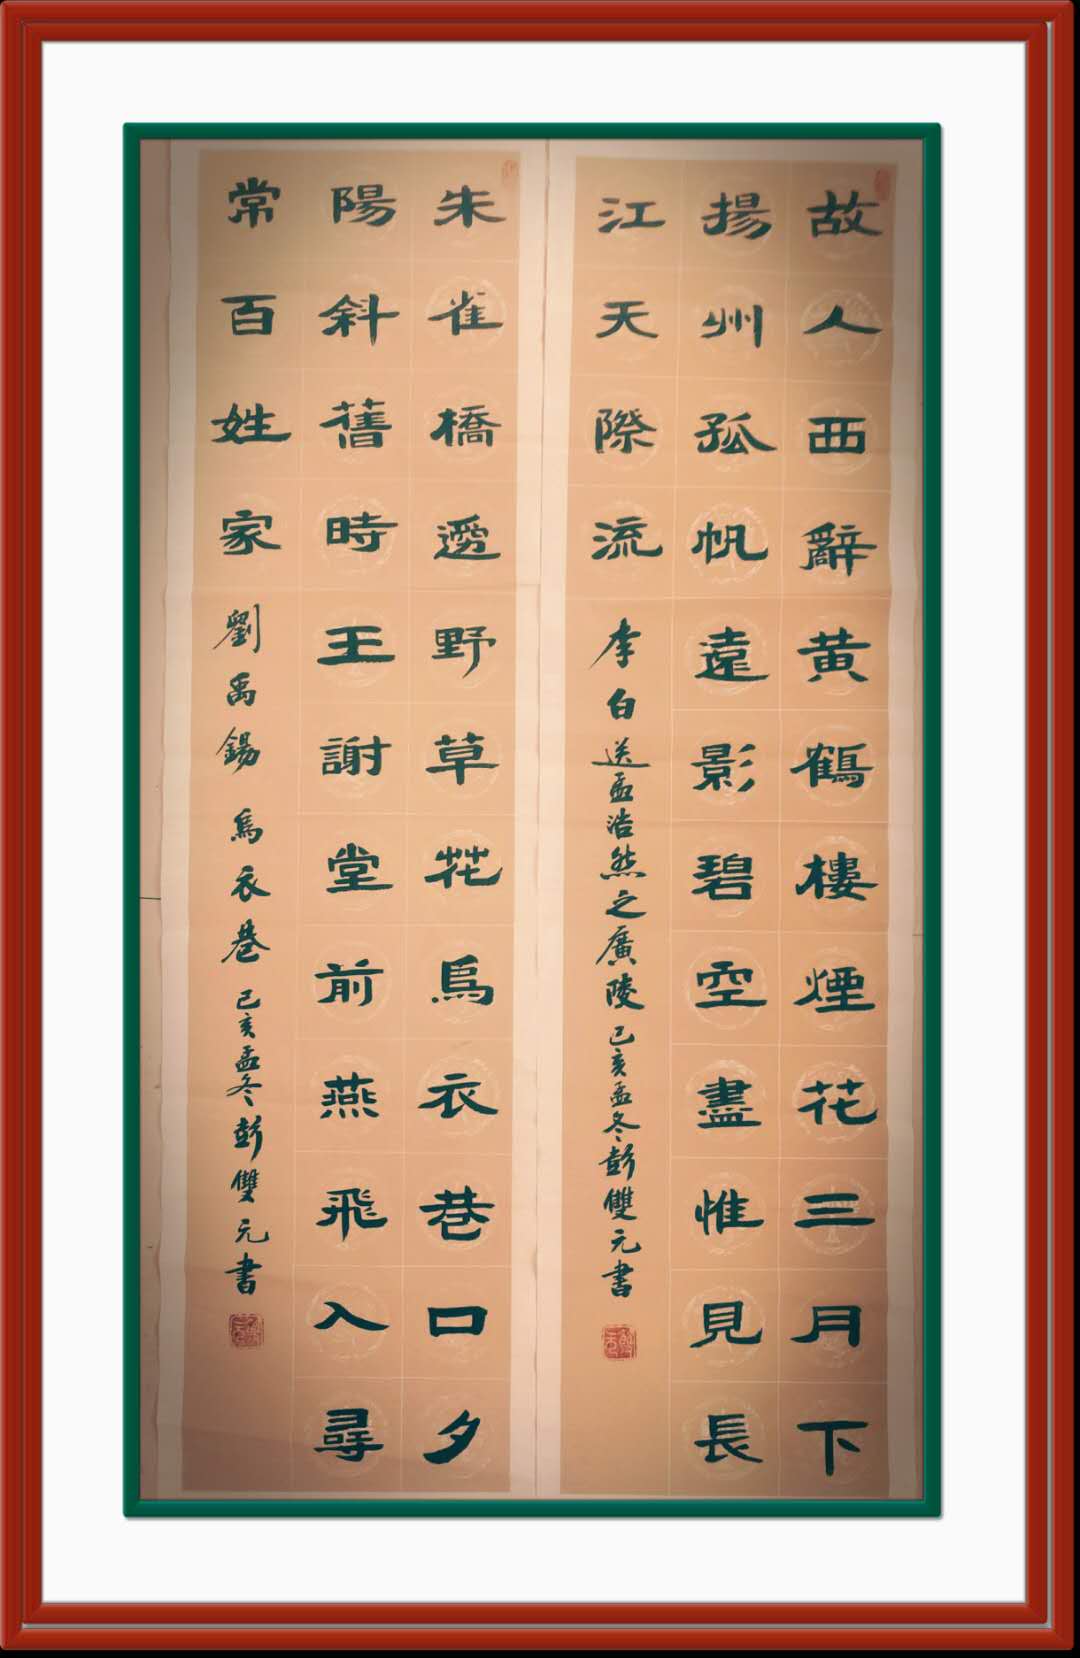 故人西辭黄鶴樓煙花三月下
揚州孤帆遠影碧空盡惟見長
江天際流
李白送孟浩然之廣陵己亥孟冬彭雙元書
朱雀橋邊野草花烏衣巷口夕
陽斜舊時王謝堂前燕飛入尋
常百姓家
劉禹錫烏衣巷己亥孟冬彭雙元書